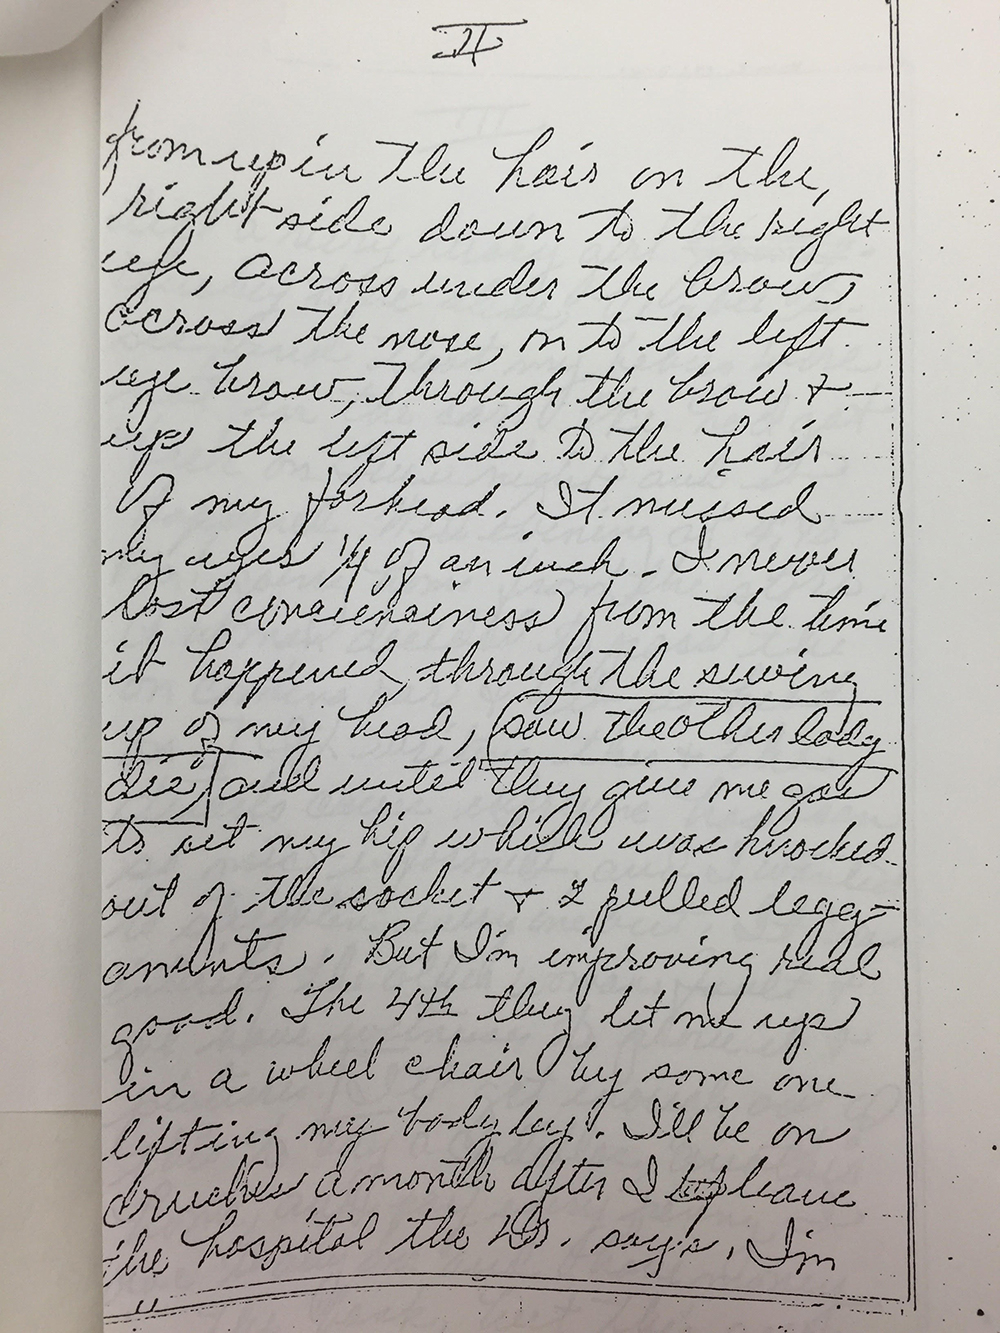 II
from up in the hair on the,
right side down to the right
eye, across under the brow,
across the nose, on to the left
eye brow, through the brow &
up the left side to the hair
of my forhead. It missed
my eyes 1/4 of an inch. I never
lost conscienciness from the time
it happened, through the sewing
up of my head, (saw the other lady
die) and until they give me gas
to set my hip which was knocked
out of the socket & 2 pulled legg-
aments. But I'm improving real
good. The 4th they let me up
in a wheel chair by some one
lifting my body by. I'll be on
cruches a month after I leave
the hospital the Dr. says. I'm